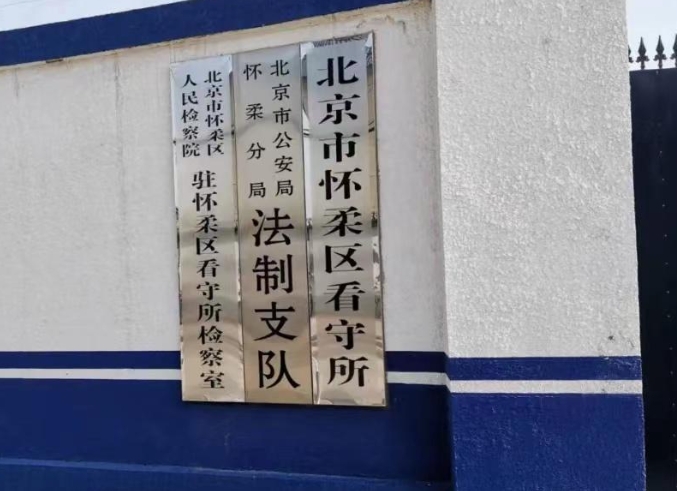 北京市怀柔区看守所
北京市公安局
怀柔分局
法制支队
北京市怀柔区
人民检察院
驻怀柔区看守所检察室